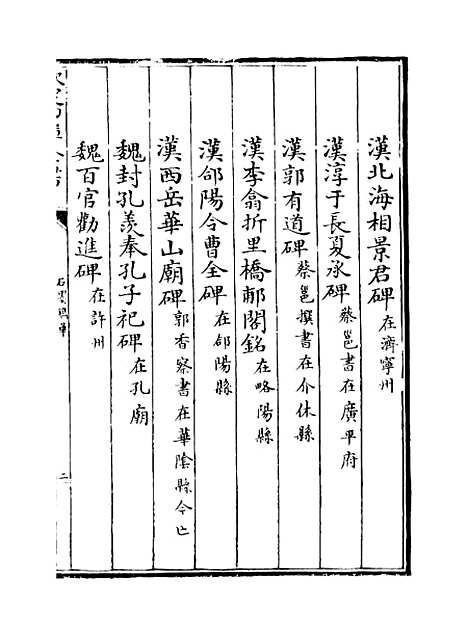 漢北海相景君碑在濟寧州
漢淳于長夏承碑蔡邕書在廣平府
漢郭有道碑蔡邕撰書在介休縣
漢李翕折里橋郙閣銘在略陽縣
漢郃陽令曹全碑在郃陽縣
漢西岳華山廟碑郭香察書在華陰縣今亡
魏封孔羡奉孔子祀碑在孔廟
魏百官勸進碑在許州
二